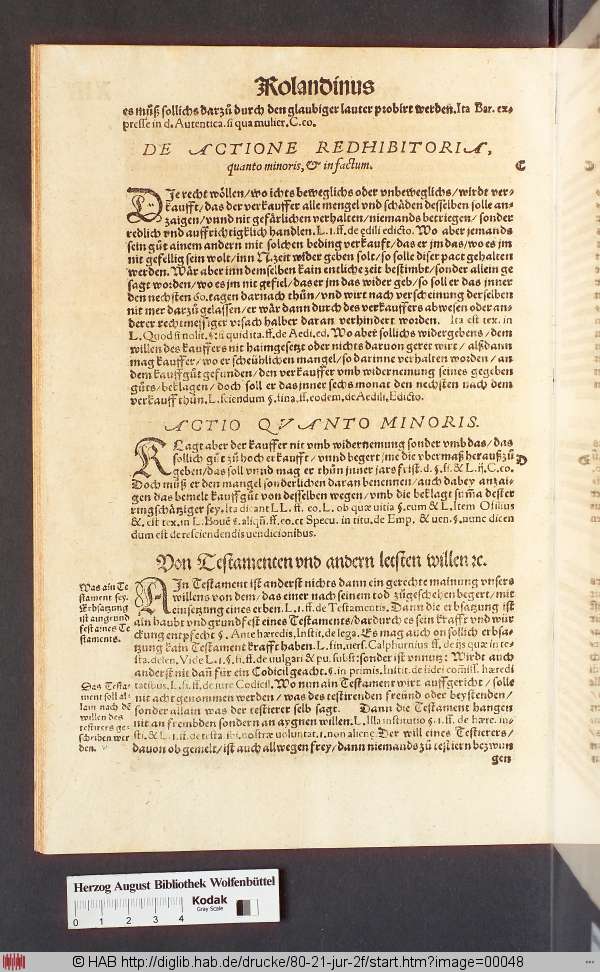 Rolandinus
es müß sollichs darzů durch den glaubiger lauter probirt werden. Ita Bar. ex-
presse in d. Autentica. si qua mulier. C. eo.
DE ACTIONE REDHIBITORIA,
quanto minoris, & in factum.
C
DIe recht wöllen/ wo ichts beweglichs oder vnbeweglichs/ wirdt ver-
kaufft/ das der verkauffer alle mengel vnd schäden desselben solle an-
zaigen/ vnnd nit gefärlichen verhalten/ niemands betriegen/ sonder
redlich vnd auffrichtigklich handlen. L. 1. ff. de edili edicto. Wo aber jemands
sein gůt ainem andern mit solchen beding verkauft/ das er jm das/ wo es jm
nit gefellig sein wolt/ inn N. zeit wider geben solt/ so solle diser pact gehalten
werden. Wär aber inn demselben kain entliche zeit bestimbt/ sonder allein ge
sagt worden/ wo es jm nit gefiel/ das er jm das wider geb/ so soll er das jnner
den nechsten 60. tagen darnach thůn/ vnd wirt nach verscheinung derselben
nit mer darzů gelassen/ er wär dann durch des verkauffers abwesen oder ans
derer rechtmessiger vrsach halber daran verhindert worden. Ita est tex. in
L. Quod si nolit. §. si quid ita. ff. de Aedi. ed. Wo aber sollichs widergebens/ dem
willen des kauffers nit haimgesetzt oder nichts daruon geret wirt/ alßdann
mag kauffer/ wo er scheühlichen mangel/ so darinne verhalten worden/ an
dem kauffgůt gefunden/ den verkauffer vmb widernemung seines gegeben
gůts/ beklagen/ doch soll er das jnner sechs monat den nechsten nach dem
verkauff thůn. L. sciendum §. fina. ff. eodem. de Aedili. Edicto.
ACTIO QVANTO MINORIS.
KLagt aber der kauffer nit vmb widernemung sonder vmb das/ das
sollich gůt zů hoch erkaufft/ vnnd begert jme die vbermaß herauß zů
geben/ das soll vnnd mag er thůn jnner jars frist. d. §. fi. & L. ij. C. eo.
D
Doch můß er den mangel sonderlichen daran benennen/ auch dabey anzai-
gen das bemelt kauffgůt von desselben wegen/ vmb die beklagt sum̃a dester
ringschätziger sey. Ita dicant LL. ff. eo. L. ob quæ vitia §. cum & L. Item Ofilius
& est tex. in L. Boue §. aliqñ. ff. eo. et Specu. in titu. de Emp. & uen. §. nunc dicen
dum est de rescindendis uendicionibus.
Von Testamenten vnd andern letsten willen ꝛc.
Was ain Te
stament sey.
Erbsatzung
ist ain grund
fest aines Te
staments.
AIn Testament ist anderst nichts dann ein gerechte mainung vnsers
willens von dem/ das einer nach seinem tod zůgeschehen begert/ mit
einsetzung eines erben. L. 1. ff. de Testamentis. Dann die erbsatzung ist
ain haubt vnd grundfest eines Testaments/ dardurch es sein krafft vnd wür
ckung entpfecht §. Ante hæredis, Instit. de lega. Es mag auch on sollich erbsa-
tzung kain Testament krafft haben. L. fin. uers. Calphurnius ff. de ijs quæ in te-
sta. delen. Vide L. 1. §. fi. ff. de uulgari & pu. subst: sonder ist vnnutz: Wirdt auch
anderst nit dañ für ein Codicil geacht. §. in primis. Instit. de fidei comiss. hæredi
Das Testa-
ment soll al-
lain nach dē
willen des
testirers ge-
schriben wer
den.
tatibus. L. fi. ff. de iure Codicil. Wo nun ain Testament wirt auffgericht/ solle
nit acht genommen werden/ was des testirenden freünd oder beystenden/
sonder allain was der testierer selb sagt. Dann die Testament hangen
nit an frembden sondern an aygnen willen. L. Illa institutio §. 1. ff. de hære. in-
sti. & L. 1. ff. de testa. ibi. nostræ uoluntat. 1. non alienę. Der will eines Testierers/
dauon ob gemelt/ ist auch allwegen frey/ dann niemands zů testiern bezwun
gen
Herzog August Bibliothek Wolfenbüttel
0 1 2 3 4
Kodak
Gray Scale
© HAB http://diglib.hab.de/drucke/80-21-jur-2f/start.htm?image=00048